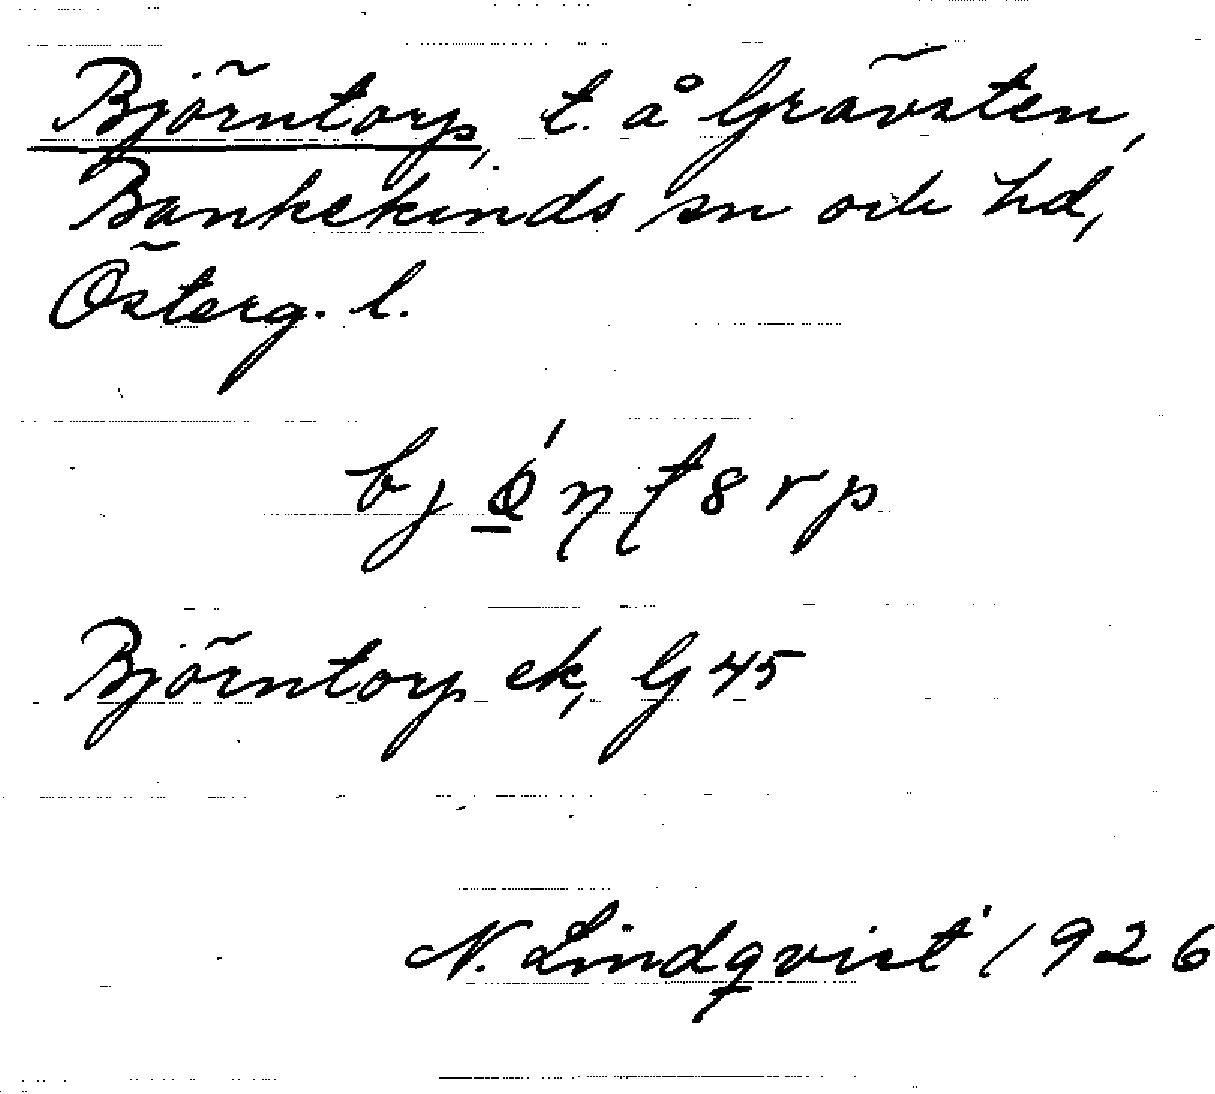 Björntorp, t. å Grävsten,
Bankekinds sn och hd,
Österg. l.
Björntorp ek, G 45
N. Lindqvist 1926